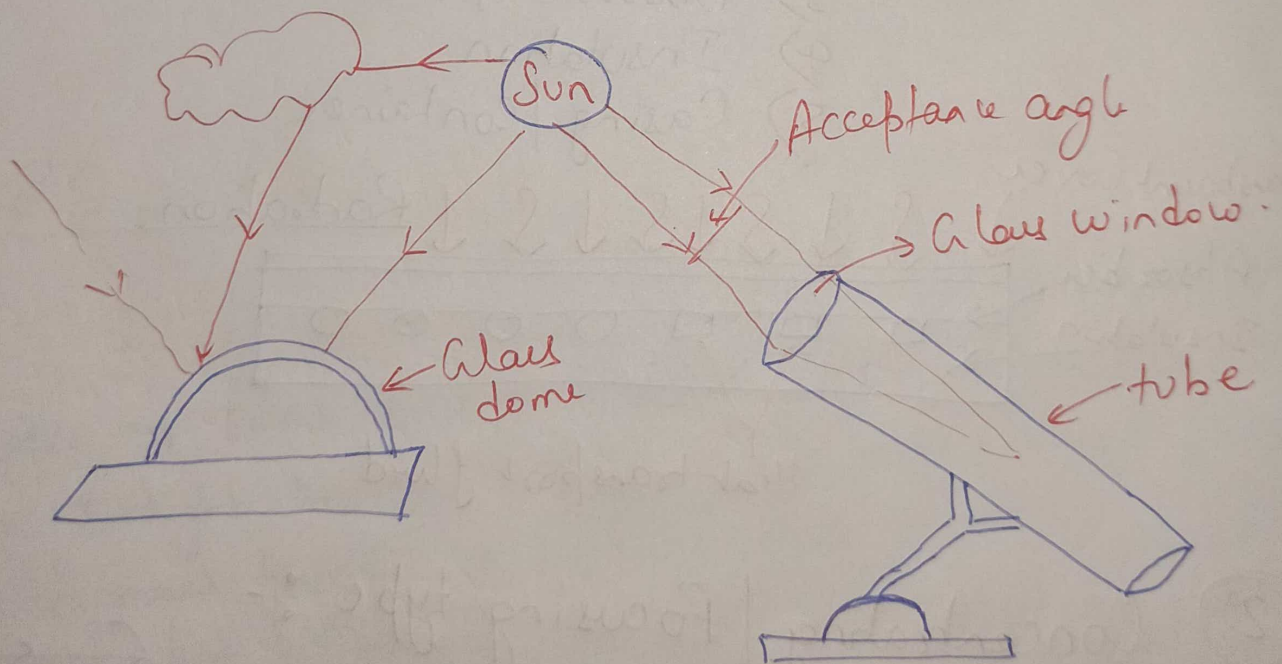 Sun
Acceptance angle
Glass window.
Glass
dome
tube